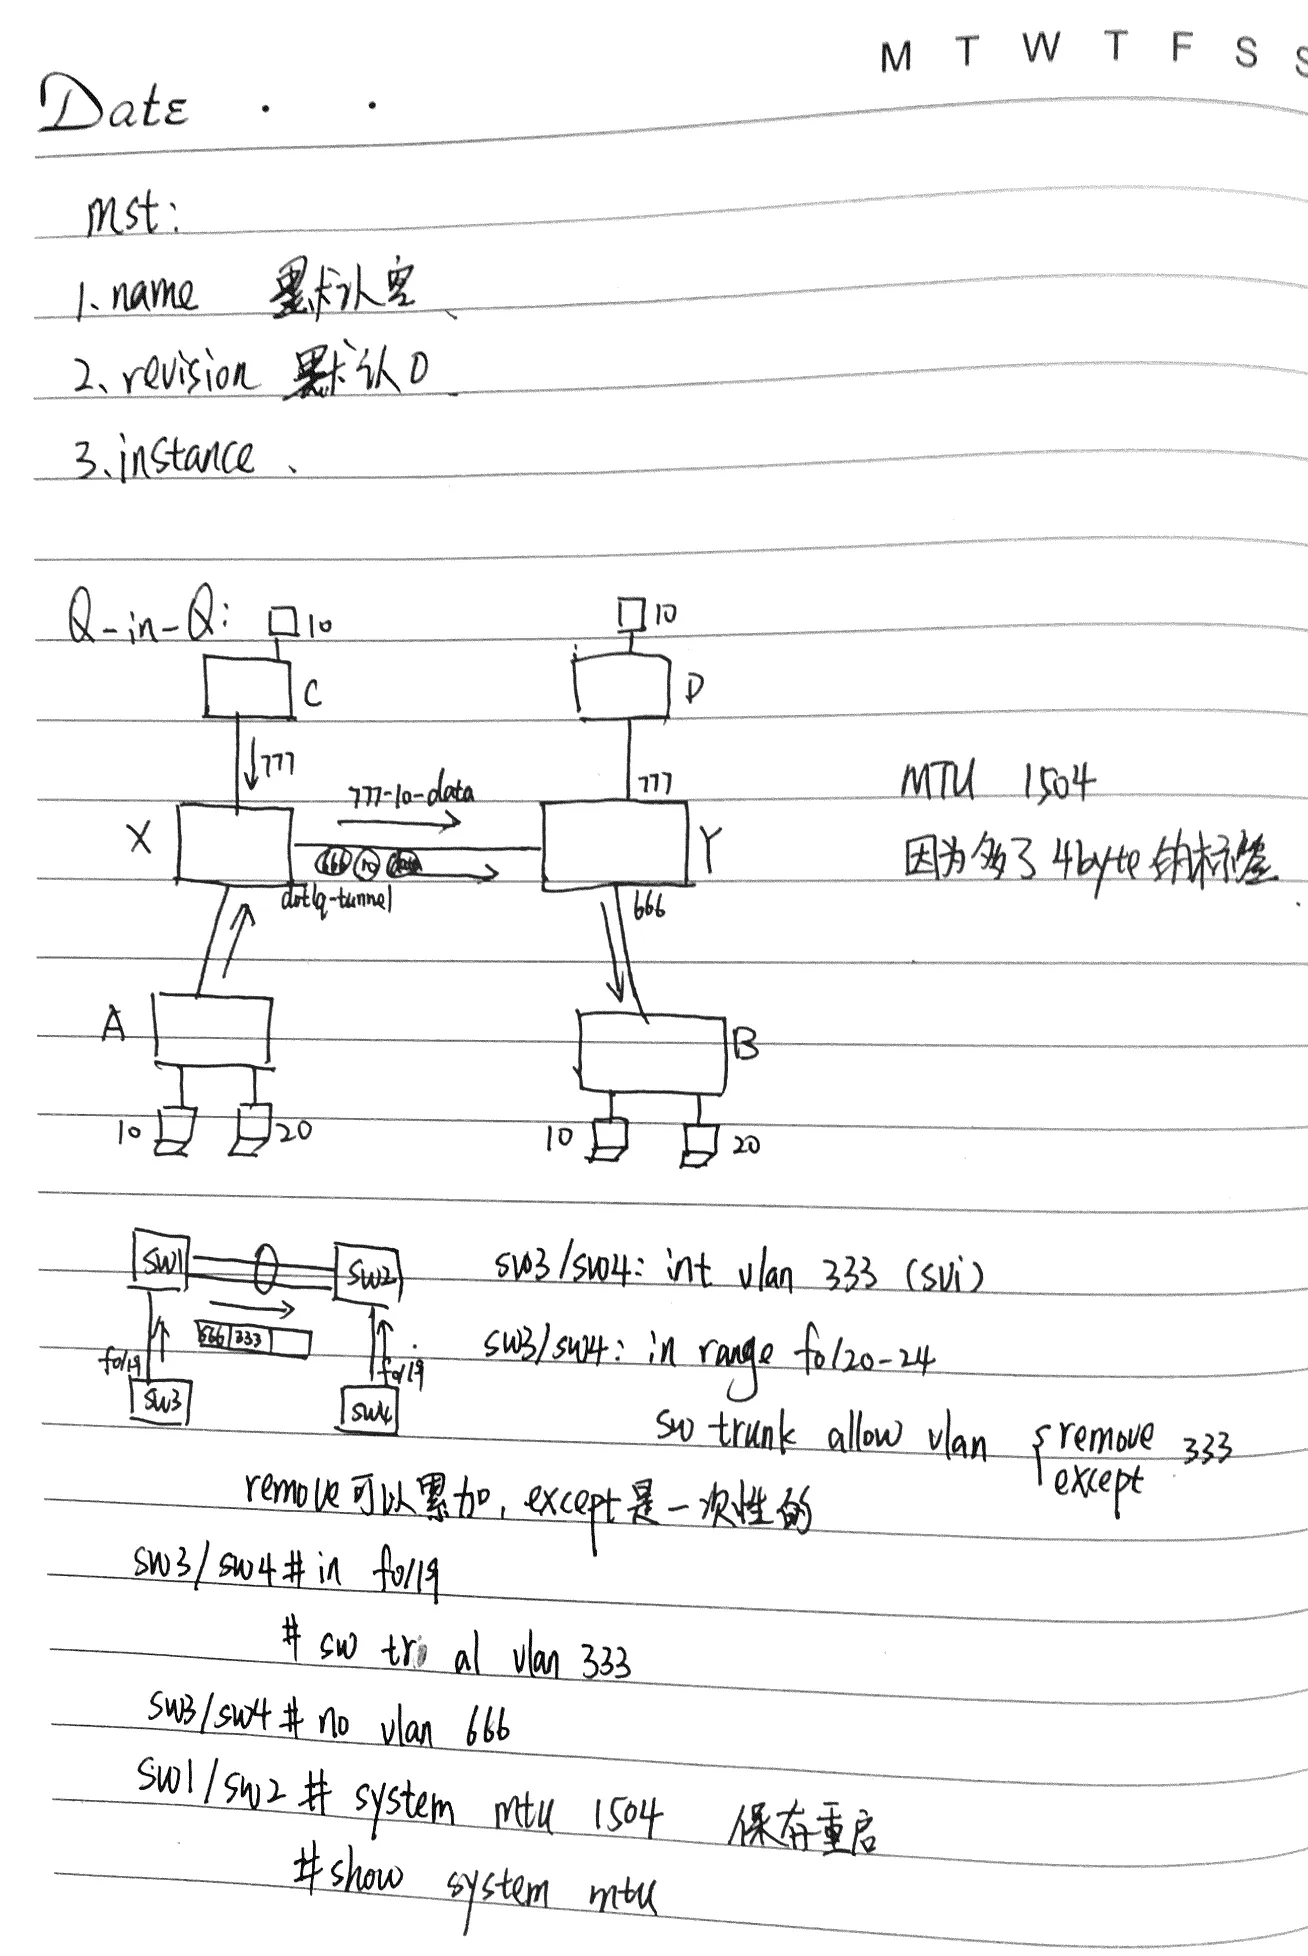 M T W T F S S
Date . .
mst:
1、name 默认空、
2、revision 默认0
3、instance 、
Q-in-Q:
10
10
C
D
777
777-10-data
777
MTU 1504
X
Y
666 10 data
因为多了4byte的标签.
dot1q-tunnel
666
A
B
10
20
10
20
SW1
SW2
sw3/sw4: int vlan 333 (svi)
666 333
f0/19
f0/19
sw3/sw4: in range f0/20-24
SW3
SW4
sw trunk allow vlan { remove 333
except
remove可以累加, except是一次性的
sw3/sw4 # in f0/19
# sw tr al vlan 333
sw3/sw4 # no vlan 666
sw1/sw2 # system mtu 1504 保存重启
# show system mtu